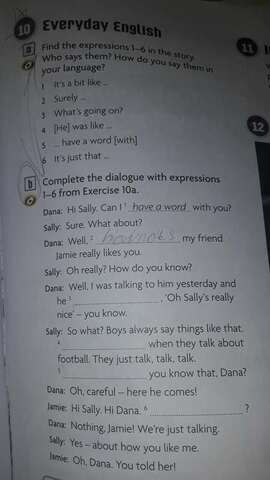 10 Everyday English
a Find the expressions 1–6 in the story.
Who says them? How do you say them in
your language?
1 It's a bit like ...
2 Surely ...
3 What's going on?
4 [He] was like ...
5 ... have a word [with]
6 It's just that ...
b Complete the dialogue with expressions
1–6 from Exercise 10a.
Dana: Hi Sally. Can I 1 have a word with you?
Sally: Sure. What about?
Dana: Well, 2 my friend
Jamie really likes you.
Sally: Oh really? How do you know?
Dana: Well, I was talking to him yesterday and
he 3 ____________, 'Oh Sally's really
nice' – you know.
Sally: So what? Boys always say things like that.
4 ____________ when they talk about
football. They just talk, talk, talk.
5 ____________ you know that, Dana?
Dana: Oh, careful – here he comes!
Jamie: Hi Sally. Hi Dana. 6 ____________?
Dana: Nothing, Jamie! We're just talking.
Sally: Yes – about how you like me.
Jamie: Oh, Dana. You told her!
11
12